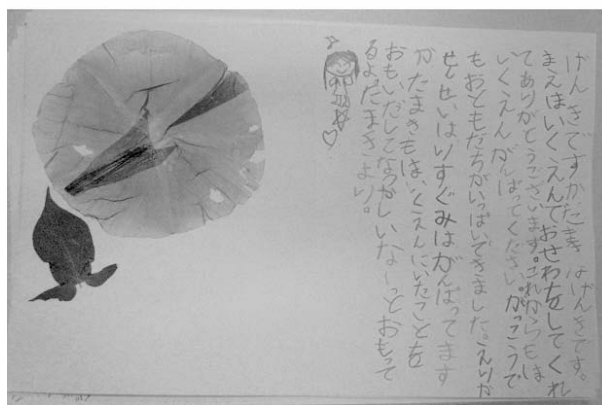 げんきですかたまきはげんきです。
まえほいくえんでおせわをしてくれ
てありがとうございます。これからもほ
いくえんがんばってください。がっこうで
もおともだちがいっぱいできました。
せんせいはりすぐみはがんばってます
か たまきもほいくえんにいたことを
おもいだしてなつかしいな〜っとおもって
るよたまきより。